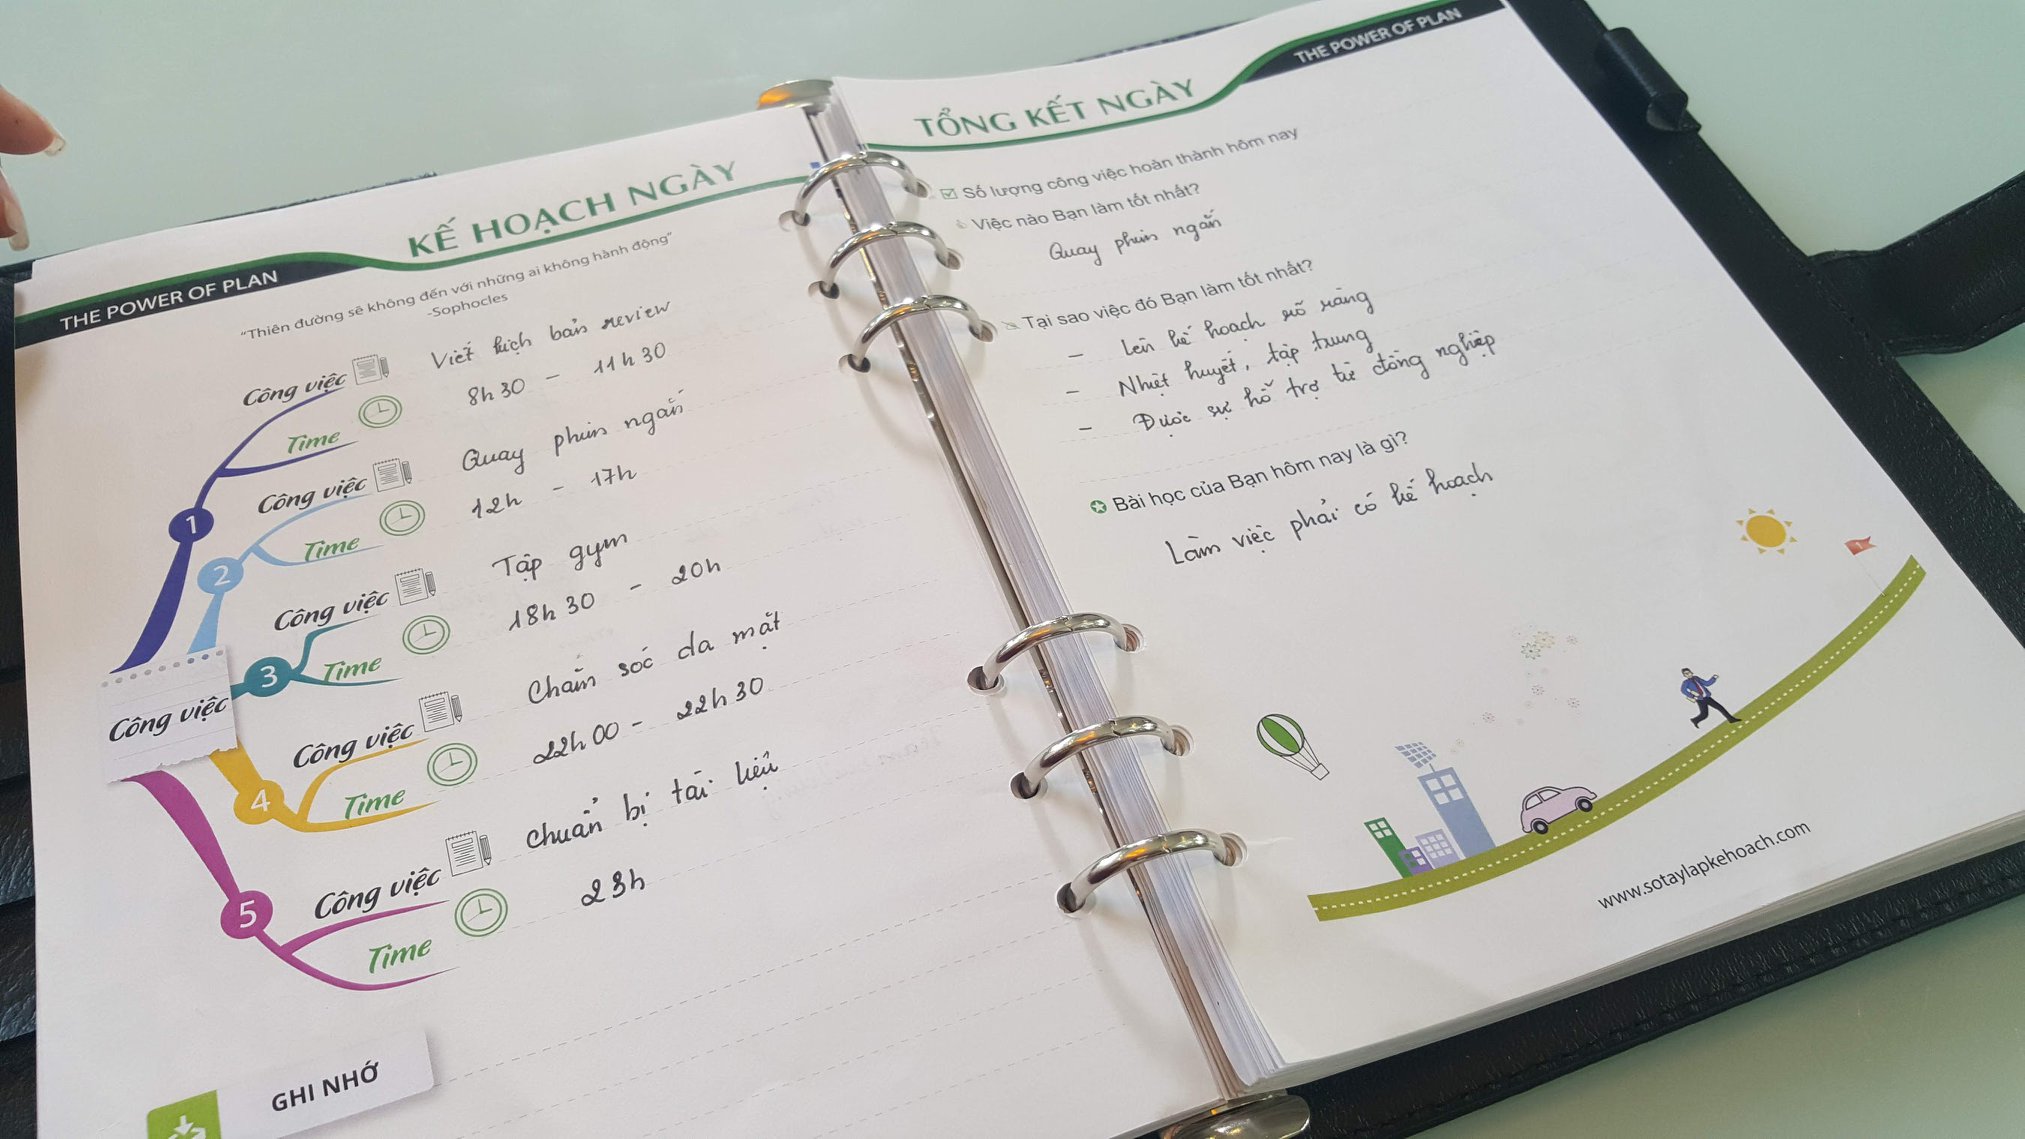 THE POWER OF PLAN
KẾ HOẠCH NGÀY
"Thiên đường sẽ không đến với những ai không hành động"
-Sophocles
Công việc
1
Công việc
Viết kịch bản review
Time
8h30 - 11h30
2
Công việc
Quay phim ngắn
Time
12h - 17h
3
Công việc
Tập gym
Time
18h30 - 20h
4
Công việc
Chăm sóc da mặt
Time
22h00 - 22h30
5
Công việc
Chuẩn bị tài liệu
Time
23h
GHI NHỚ
THE POWER OF PLAN
TỔNG KẾT NGÀY
Số lượng công việc hoàn thành hôm nay
Việc nào Bạn làm tốt nhất?
Quay phim ngắn
Tại sao việc đó Bạn làm tốt nhất?
- Lên kế hoạch rõ ràng
- Nhiệt huyết, tập trung
- Được sự hỗ trợ từ đồng nghiệp
Bài học của Bạn hôm nay là gì?
Làm việc phải có kế hoạch
1
www.sotaylapkehoach.com